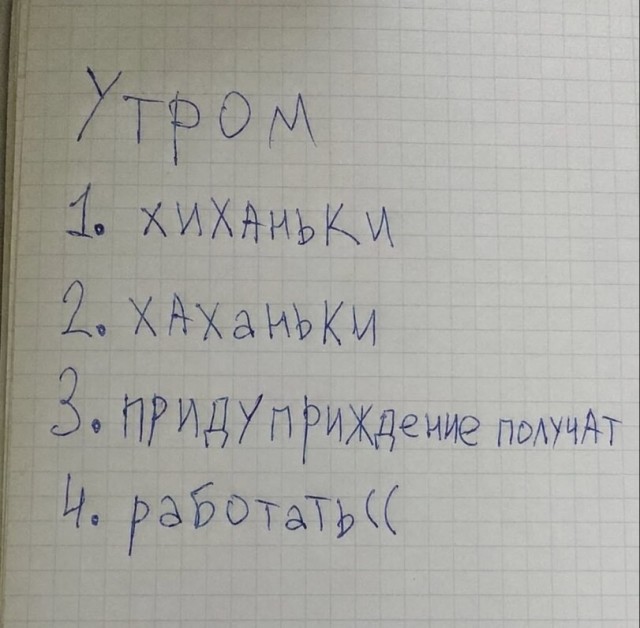 Утром
1. хиханьки
2. хаханьки
3. придуприждение получат
4. работать((